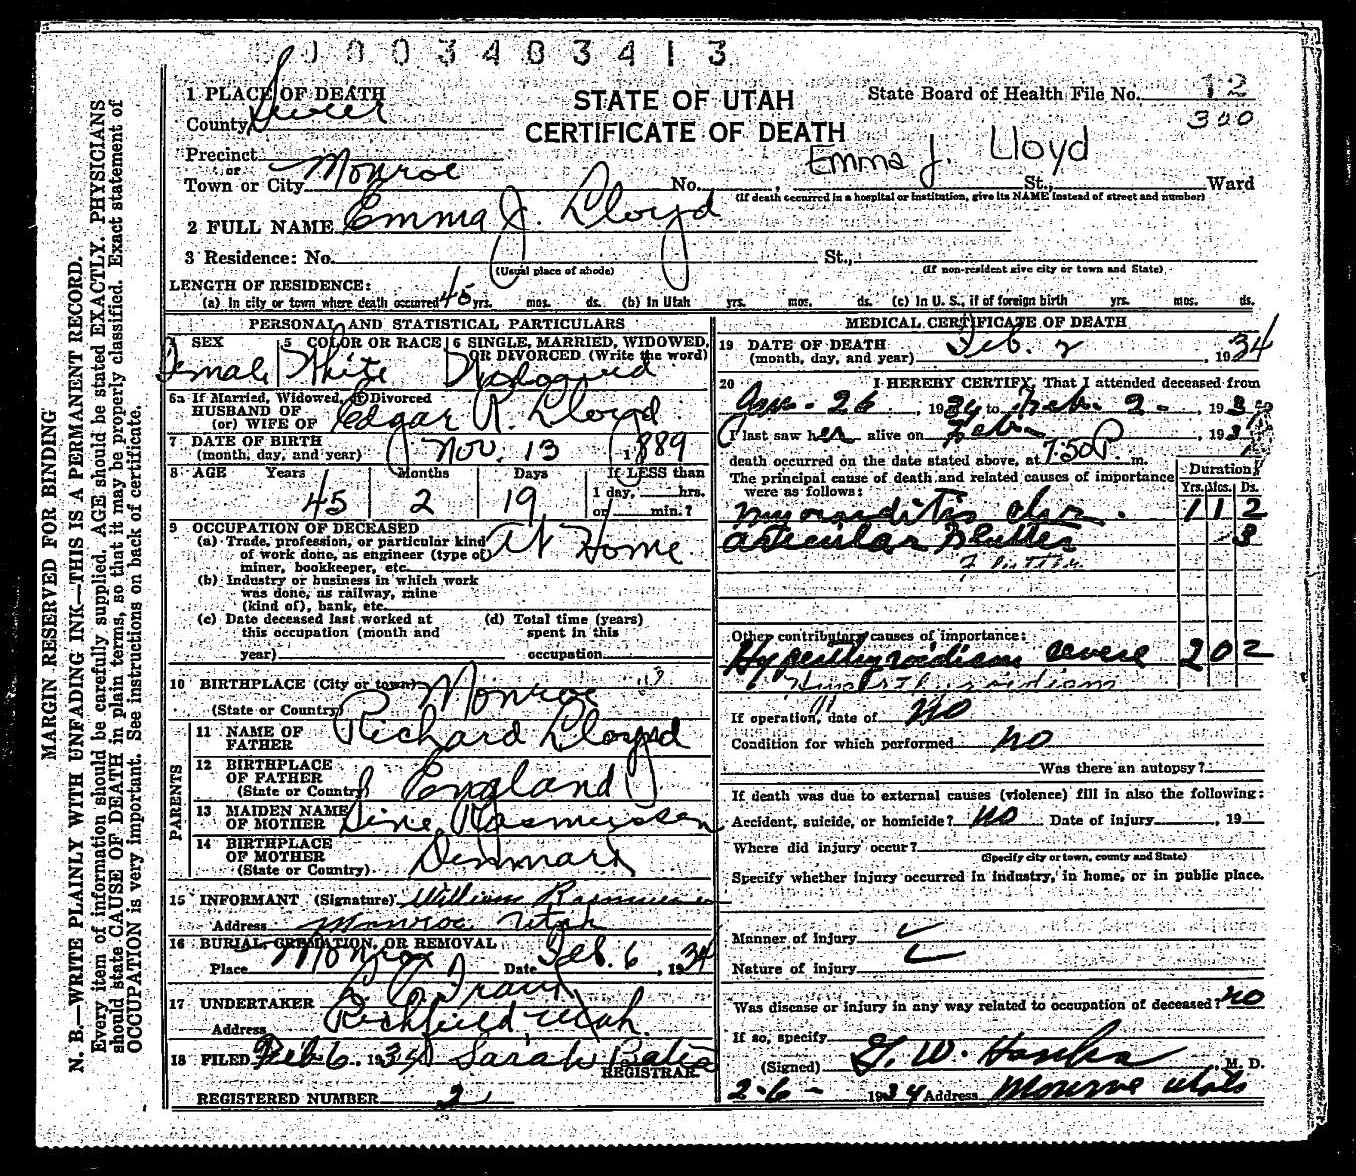 1003403413
1 PLACE OF DEATH
STATE OF UTAH
CERTIFICATE OF DEATH
State Board of Health File No. 12
300
County Sevier
Precinct
or
Town or City Monroe No. , St., Ward
Emma J. Lloyd
(If death occurred in a hospital or institution, give its NAME instead of street and number)
2 FULL NAME Emma J. Lloyd
3 Residence: No. St.,
(Usual place of abode) (If non-resident give city or town and State)
LENGTH OF RESIDENCE:
(a) In city or town where death occurred 45 yrs. mos. ds. (b) In Utah yrs. mos. ds. (c) In U. S., if of foreign birth yrs. mos. ds.
PERSONAL AND STATISTICAL PARTICULARS
4 SEX 5 COLOR OR RACE 6 SINGLE, MARRIED, WIDOWED, OR DIVORCED (Write the word)
Female White
6a If Married, Widowed, or Divorced
HUSBAND OF
(or) WIFE OF Edgar R. Lloyd
7 DATE OF BIRTH
(month, day, and year) Nov. 13 1889
8 AGE Years Months Days If LESS than
45 2 19 1 day, hrs.
or min.?
9 OCCUPATION OF DECEASED
(a) Trade, profession, or particular kind
of work done, as engineer (type of)
miner, bookkeeper, etc. At Home
(b) Industry or business in which work
was done, as railway, mine
(kind of), bank, etc.
(c) Date deceased last worked at
this occupation (month and
year)
(d) Total time (years)
spent in this
occupation
10 BIRTHPLACE (City or town) Monroe
(State or Country)
PARENTS
11 NAME OF
FATHER Richard Lloyd
12 BIRTHPLACE
OF FATHER
(State or Country) England
13 MAIDEN NAME
OF MOTHER Sine Rasmussen
14 BIRTHPLACE
OF MOTHER
(State or Country) Denmark
15 INFORMANT (Signature) William Rasmussen
Address Monroe Utah
16 BURIAL, CREMATION, OR REMOVAL
Place Monroe Date Feb. 6, 1934
17 UNDERTAKER
Address Richfield, Utah.
18 FILED Feb 6. 1934 Sarah Bates
REGISTRAR
REGISTERED NUMBER 2
MEDICAL CERTIFICATE OF DEATH
19 DATE OF DEATH
(month, day, and year) Feb. 2, 1934
20 I HEREBY CERTIFY, That I attended deceased from
Jan. 26, 1934 to Feb. 2, 193
I last saw her alive on Feb. , 193
death occurred on the date stated above, at 7:50 P. m.
The principal cause of death and related causes of importance
were as follows:
Duration
Yrs. Mos. Ds.
myocarditis chr. 1 1 2
auricular flutter 3
Flutter
Other contributory causes of importance:
Hyperthyroidism severe 2 0 2
Hyperthyroidism
If operation, date of No
Condition for which performed no
Was there an autopsy?
If death was due to external causes (violence) fill in also the following:
Accident, suicide, or homicide? No Date of injury , 19
Where did injury occur?
(Specify city or town, county and State)
Specify whether injury occurred in industry, in home, or in public place.
Manner of injury
Nature of injury
Was disease or injury in any way related to occupation of deceased? no
If so, specify
(Signed) G. W. , M. D.
2-6- 1934 Address Monroe Utah
MARGIN RESERVED FOR BINDING
N. B.—WRITE PLAINLY WITH UNFADING INK—THIS IS A PERMANENT RECORD.
Every item of information should be carefully supplied. AGE should be stated EXACTLY. PHYSICIANS
should state CAUSE OF DEATH in plain terms, so that it may be properly classified. Exact statement of
OCCUPATION is very important. See instructions on back of certificate.